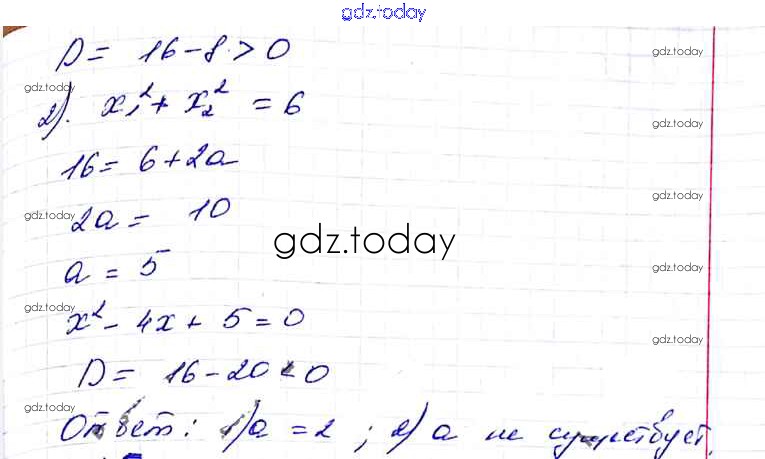 gdz.today
D = 16 - 8 > 0
gdz.today
gdz.today
2). x₁² + x₂² = 6
gdz.today
16 = 6 + 2a
gdz.today
gdz.today
2a = 10
gdz.today
a = 5
gdz.today
gdz.today
x² - 4x + 5 = 0
gdz.today
D = 16 - 20 < 0
gdz.today
Ответ: 1) a = 2 ; 2) a не существует.